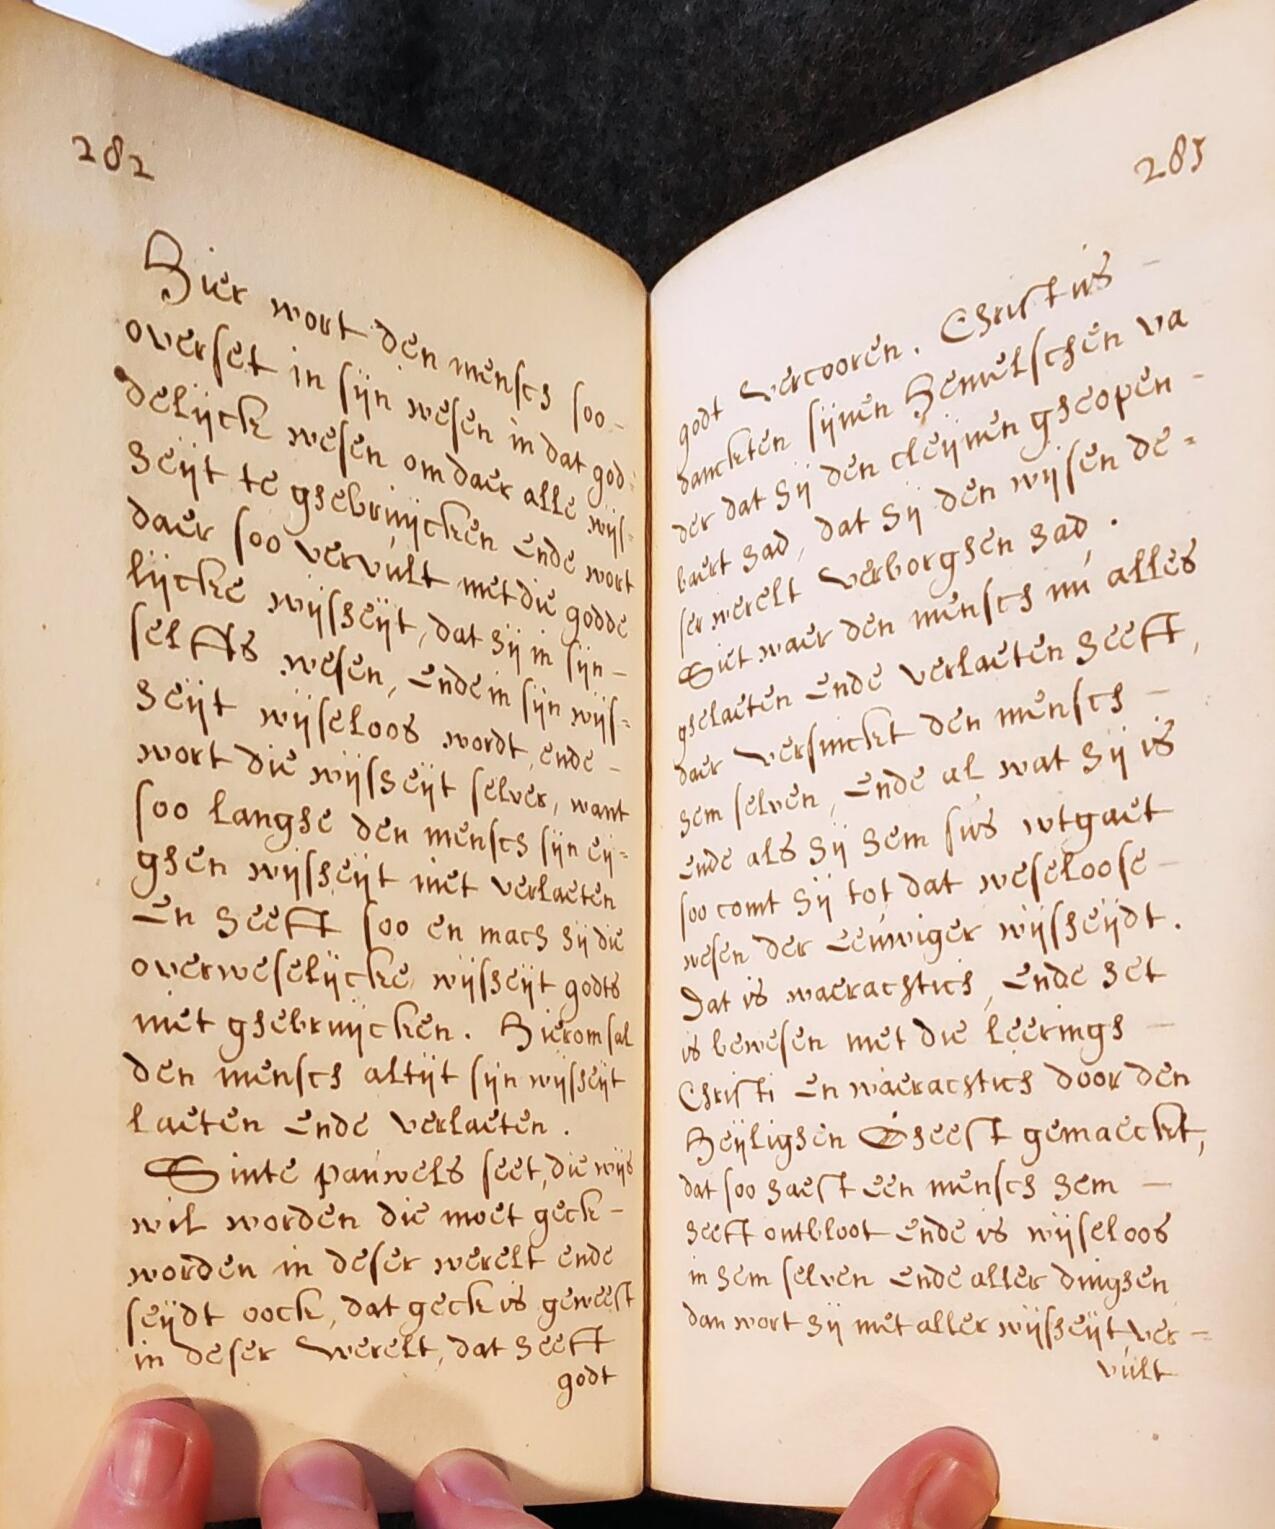 282
Hier wort den mensch soo-
overset in sijn wesen in dat god=
delijck wesen om daer alle wijs=
heijt te ghebruijcken ende wort
daer soo vervúlt met die godde
lijcke wijsheijt, dat hij in sijn-
selffs wesen, ende in sijn wijs=
heijt wijseloos wordt, ende-
wort die wijsheijt selver, want
soo langhe den mensch sijn eij=
ghen wijsheijt niet verlaeten
en heeft soo en mach hij die
overweselijcke wijsheijt godts
niet ghebruijcken. Hierom sal
den mensch altijt sijn wijsheijt
laeten ende verlaeten.
Sinte paúwels seet, die wijs
wil worden die moet geck-
worden in deser werelt ende
seijdt oock, dat geck is geweest
in deser werelt, dat heeft
godt
283
godt vercooren. Christus-
danckten sijnen hemelschen va
der dat hij den cleijnen gheopen-
baert had, dat hij den wijsen de=
ser werelt verborghen had.
Siet waer den mensch nú alles
ghelaeten ende verlaeten heeft,
daer versinckt den mensch-
hem selven, ende al wat hij is
ende als hij hem sús wtgaet
soo comt hij tot dat weseloose-
wesen der eeúwiger wijsheijdt.
Dat is waerachtich, ende het
is bewesen met die leerings-
Christi en waerachtich door den
Heijlighen Gheest gemaeckt,
dat soo haest een mensch hem-
heeft ontbloot ende is wijseloos
in hem selven ende aller dinghen
dan wort hij met aller wijsheijt ver=
vúlt